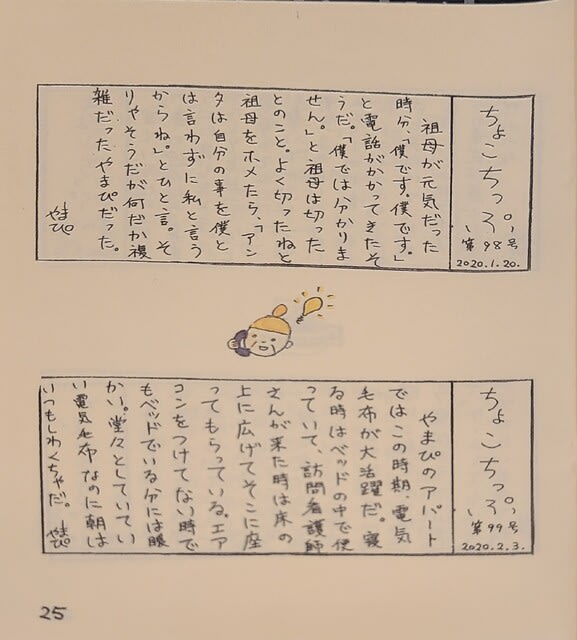 ちょこちっぷ。
第98号
2020.1.20.
祖母が元気だった
時分、「僕です。僕です。」
と電話がかかってきたそ
うだ。「僕では分かりま
せん。」と祖母は切った
とのこと。よく切ったねと
祖母をホメたら、「アン
タは自分の事を僕と
は言わずに私と言う
からね。」とひと言。そ
りゃそうだが何だか複
雑だったやまぴだった。
やまぴ
ちょこちっぷ。
第99号
2020.2.3.
やまぴのアパート
ではこの時期、電気
毛布が大活躍だ。寝
る時はベッドの中で使
っていて、訪問看護師
さんが来た時は床の
上に広げてそこに座
ってもらっている。エア
コンをつけてない時で
もベッドでいる分には暖
かい。堂々としていてい
い電気毛布なのに朝は
いつもしわくちゃだ。
やまぴ
25